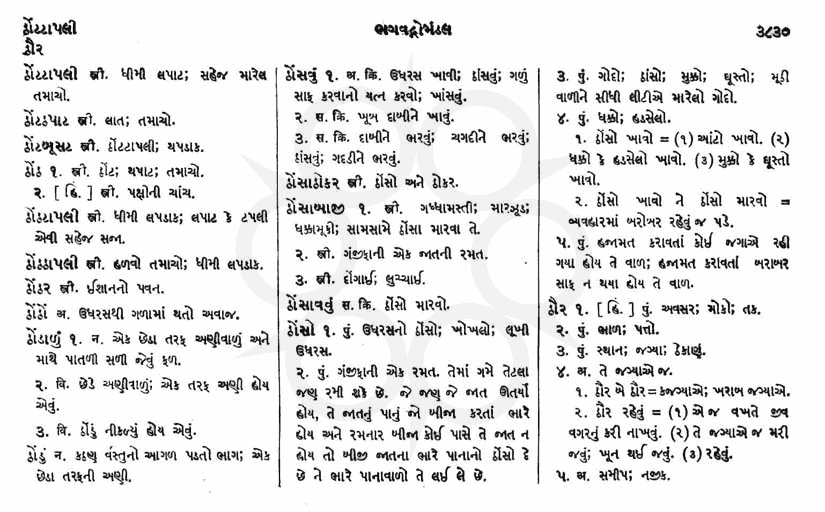 ઠોંટટાપલી
ઠૌર
ભગવદ્ગોમંડલ
૩૮૩૦
ઠોંટટાપલી સ્ત્રી. ધીમી લપાટ; સહેજ મારેલ
તમાચો.
ઠોંટઠપાટ સ્ત્રી. લાત; તમાચો.
ઠોંટભૂસટ સ્ત્રી. ઠોંટટાપલી; થપડાક.
ઠોંઠ ૧. સ્ત્રી. ઠોંટ; થપાટ; તમાચો.
૨. [ હિં. ] સ્ત્રી. પક્ષીની ચાંચ.
ઠોંઠટાપલી સ્ત્રી. ધીમી લપડાક; લપાટ કે ટપલી
એવી સહેજ સજા.
ઠોંઠઠાપલી સ્ત્રી. હળવો તમાચો; ધીમી લપડાક.
ઠોંઠર સ્ત્રી. ઈશાનનો પવન.
ઠોંઠોં અ. ઉધરસથી ગળામાં થતો અવાજ.
ઠોંડાળું ૧. ન. એક છેડા તરફ અણીવાળું અને
માથે પાતળી સળી જેવું ફળ.
૨. વિ. છેડે અણીવાળું; એક તરફ અણી હોય
એવું.
૩. વિ. ઠોંડું નીકળ્યું હોય એવું.
ઠોંડું ન. કઠણ વસ્તુનો આગળ પડતો ભાગ; એક
છેડા તરફની અણી.
ઠોંસવું ૧. અ. ક્રિ. ઉધરસ ખાવી; ઠાંસવું; ગળું
સાફ કરવાનો યત્ન કરવો; ખાંસવું.
૨. સ. ક્રિ. ખૂબ દાબીને ખાવું.
૩. સ. ક્રિ. દાબીને ભરવું; ચગદીને ભરવું;
ઠાંસવું; ગદડીને ભરવું.
ઠોંસાઠોકર સ્ત્રી. ઠોંસો અને ઠોકર.
ઠોંસાબાજી ૧. સ્ત્રી. ગધ્ધામસ્તી; મારઝૂડ;
ધક્કામૂકી; સામસામે ઠોંસા મારવા તે.
૨. સ્ત્રી. ગંજીફાની એક જાતની રમત.
૩. સ્ત્રી. દોંગાઈ; લુચ્ચાઈ.
ઠોંસાવવું સ. ક્રિ. ઠોંસો મારવો.
ઠોંસો ૧. પું. ઉધરસનો ઠોંસો; ખોખલો; લૂખી
ઉધરસ.
૨. પું. ગંજીફાની એક રમત. તેમાં ગમે તેટલા
જણ રમી શકે છે. જે જણ જે જાત ઊતર્યો
હોય, તે જાતનું પાનું જો બીજા કરતાં ભારે
હોય અને રમનાર બીજા કોઈ પાસે તે જાત ન
હોય તો બીજી જાતના ભારે પાનાનો ઠોંસો દે
છે ને ભારે પાનાવાળો તે લઈ લે છે.
૩. પું. ગોદો; ઠાંસો; મુક્કો; ઘૂસ્તો; મૂઠી
વાળીને સીધી લીટીએ મારેલો ગોદો.
૪. પું. ધક્કો; હડસેલો.
૧. ઠોંસો ખાવો = (૧) આંટો ખાવો. (૨)
ધક્કો કે હડસેલો ખાવો. (૩) મુક્કો કે ઘૂસ્તો
ખાવો.
૨. ઠોંસો ખાવો ને ઠોંસો મારવો =
વ્યવહારમાં બરોબર રહેવું જ પડે.
૫. પું. હજામત કરાવતાં કોઈ જગાએ રહી
ગયા હોય તે વાળ; હજામત કરાવતાં બરાબર
સાફ ન થયા હોય તે વાળ.
ઠૌર ૧. [ હિં. ] પું. અવસર; મોકો; તક.
૨. પું. ભાળ; પત્તો.
૩. પું. સ્થાન; જગ્યા; ઠેકાણું.
૪. અ. તે જગ્યાએ જ.
૧. ઠૌર બે ઠૌર=કજગ્યાએ; ખરાબ જગ્યાએ.
૨. ઠૌર રહેવું = (૧) એ જ વખતે જીવ
વગરનું કરી નાખવું. (૨) તે જગ્યાએ જ મરી
જવું; ખૂન થઈ જવું. (૩) રહેવું.
૫. અ. સમીપ; નજીક.